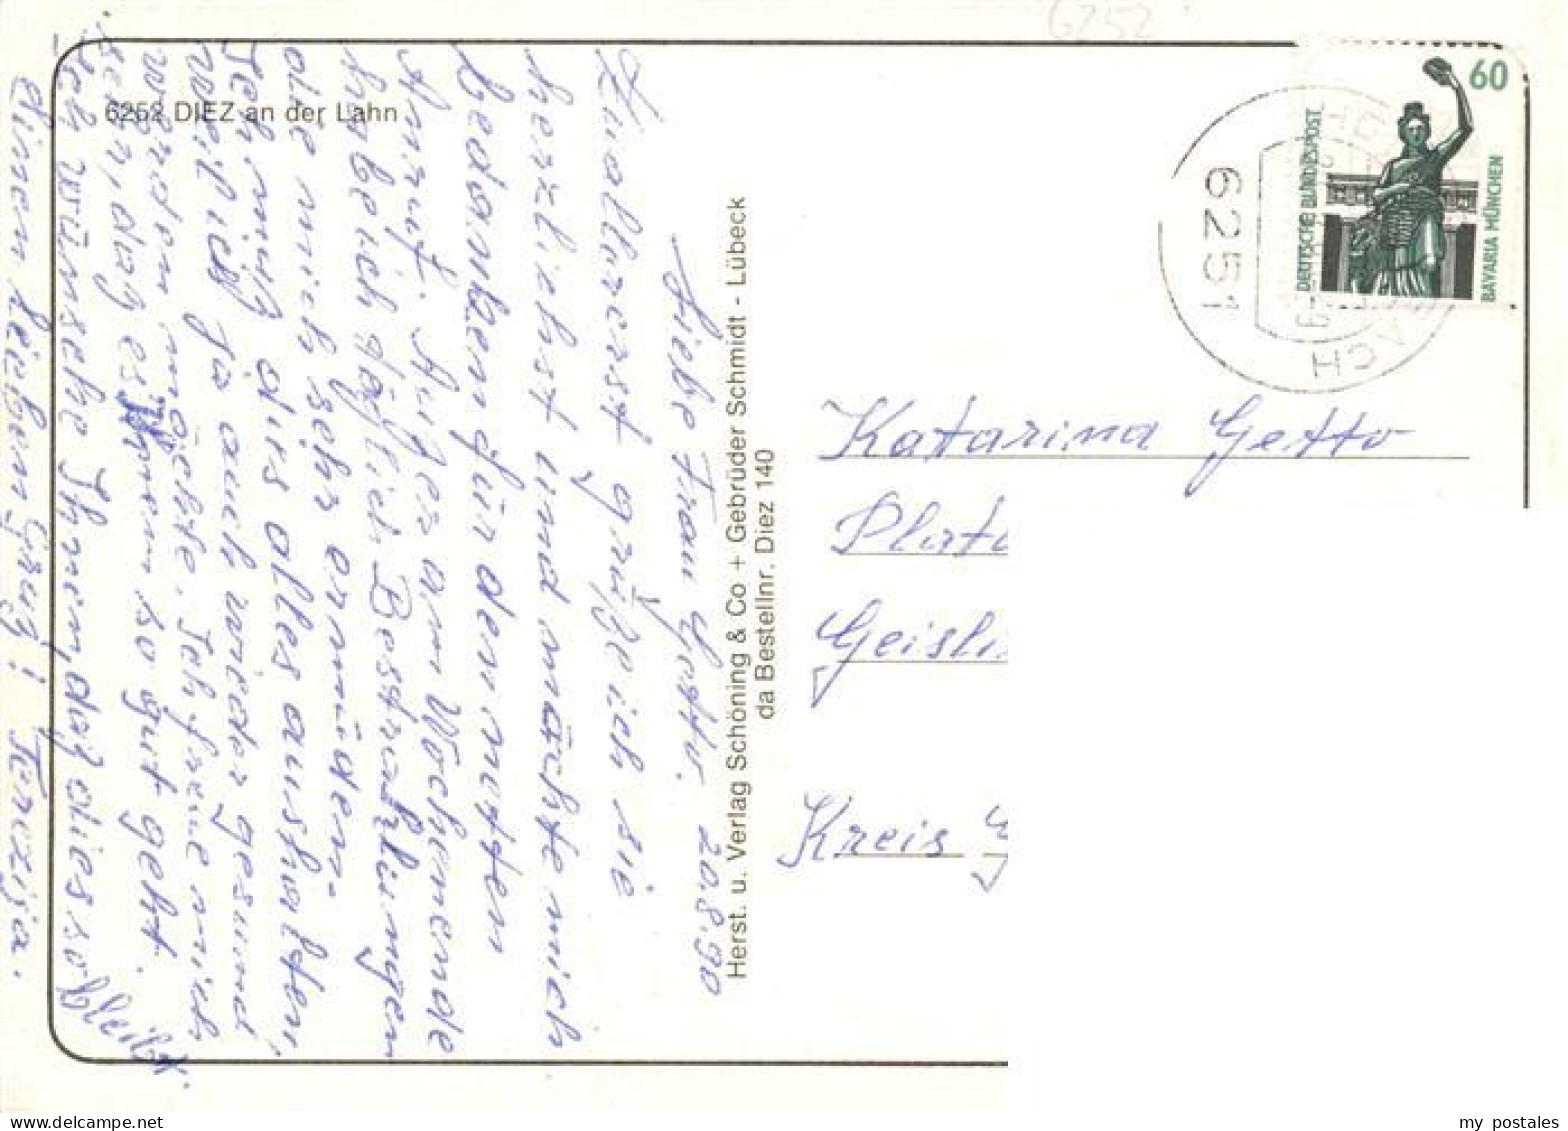 6252
6252 DIEZ an der Lahn
Liebe Frau Getto. 20.8.90
Zuallererst grüße ich sie
herzlichst und möchte mich
bedanken für den netten
Anruf. Außer am Wochenende
habe ich täglich Bestrahlungen
die mich sehr ermüden.
Ich muß dies alles aushalten,
weil ich ja auch wieder gesund
werden möchte. Ich freue mich
sehr, daß es Ihnen so gut geht.
Ich wünsche Ihnen, daß dies so bleibt.
Einen lieben Gruß! Terezija.
Herst. u. Verlag Schöning & Co + Gebrüder Schmidt - Lübeck
da Bestellnr. Diez 140
60
DEUTSCHE BUNDESPOST
BAVARIA MÜNCHEN
6251
ACH
Katarina Getto
Plat
Geisli
Kreis G
my postales